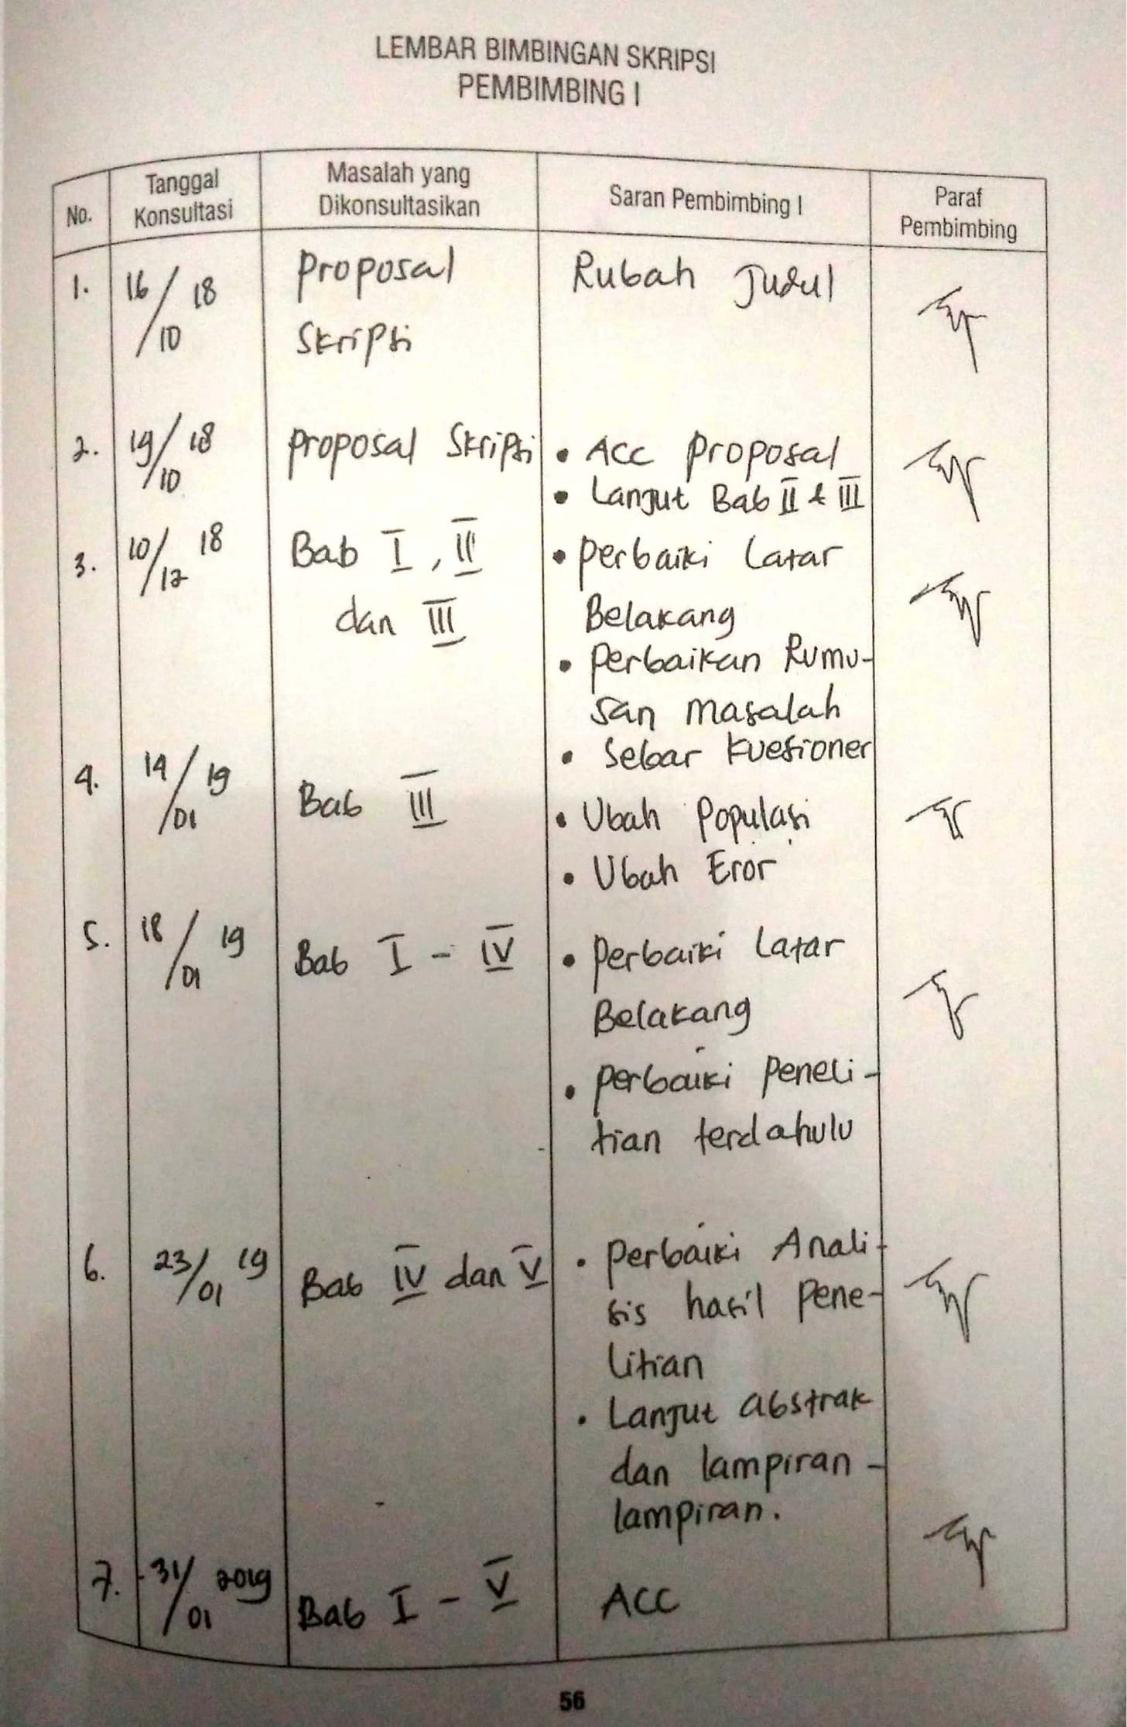 LEMBAR BIMBINGAN SKRIPSI
PEMBIMBING I
No.
Tanggal
Konsultasi
Masalah yang
Dikonsultasikan
Saran Pembimbing I
Paraf
Pembimbing
1.
16/10 18
Proposal
Skripsi
Rubah Judul
2.
19/10 18
Proposal Skripsi
• Acc Proposal
• Lanjut Bab II & III
3.
10/12 18
Bab I, II
dan III
• Perbaiki Latar
Belakang
• Perbaikan Rumu-
san Masalah
• Sebar Kuesioner
4.
14/01 19
Bab III
• Ubah Populasi
• Ubah Eror
5.
18/01 19
Bab I - IV
• Perbaiki Latar
Belakang
• Perbaiki Peneli-
tian terdahulu
6.
23/01 19
Bab IV dan V
• Perbaiki Anali-
sis hasil Pene-
litian
• Lanjut abstrak
dan lampiran-
lampiran.
7.
31/01 2019
Bab I - V
ACC
56